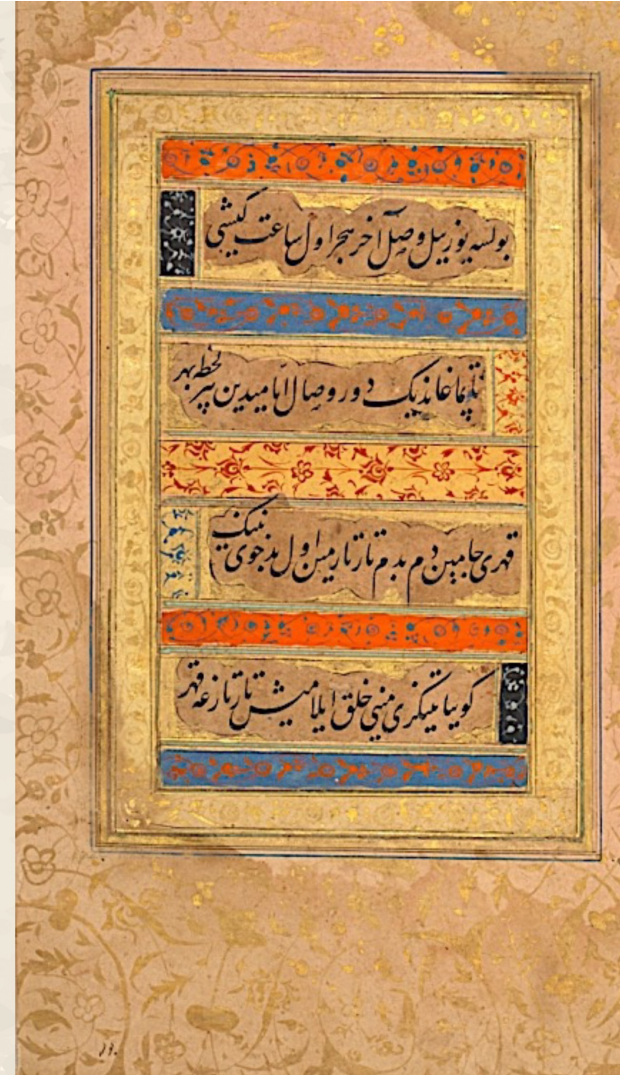 بولسه یوز ییل وصل آخر هجر اول ساعت کیشی
تاپماغاندیک دور وصال ایامیدین بیر لحظه بهر
قهری جامین دم بدم تارتارمین اول بدخوی نینک
کوییا تینکری منی خلق ایلامیش تارتارغه قهر